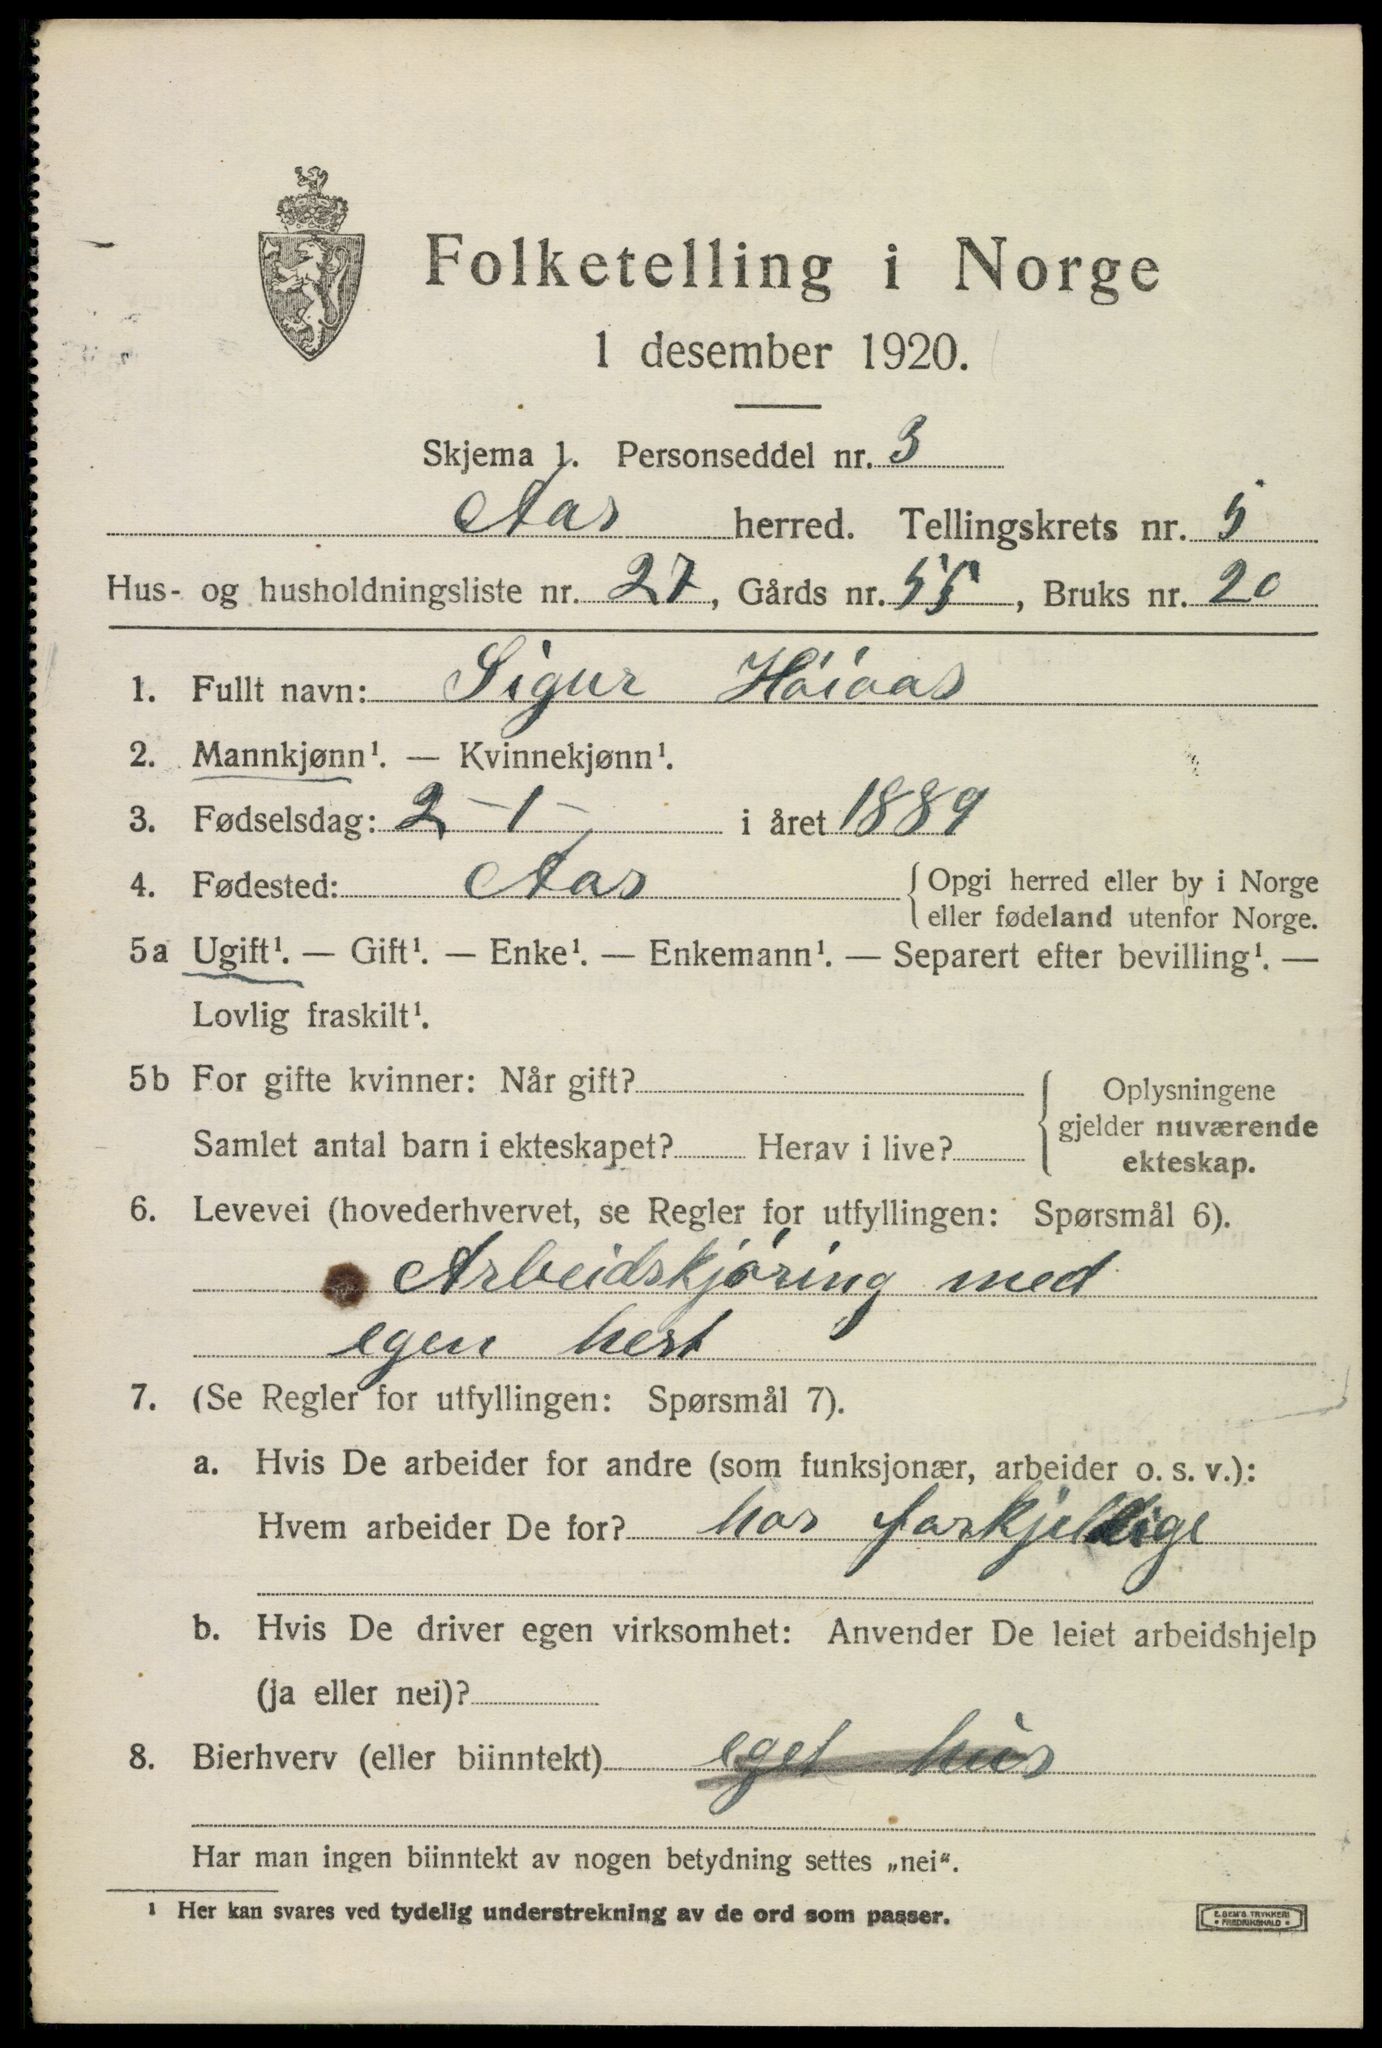 Folketelling i Norge
1 desember 1920.
Skjema 1. Personseddel nr. 3
Aas herred. Tellingskrets nr. 5
Hus- og husholdningsliste nr. 27, Gårds nr. 55, Bruks nr. 20
1. Fullt navn: Sigur Höiaas
2. Mannkjønn¹. — Kvinnekjønn¹.
3. Fødselsdag: 2 - 1 - i året 1889
4. Fødested: Aas { Opgi herred eller by i Norge
eller fødeland utenfor Norge.
5a Ugift¹. — Gift¹. — Enke¹. — Enkemann¹. — Separert efter bevilling¹. —
Lovlig fraskilt¹.
5b For gifte kvinner: Når gift? { Oplysningene
gjelder nuværende
Samlet antal barn i ekteskapet? Herav i live?
ekteskap.
6. Levevei (hovederhvervet, se Regler for utfyllingen: Spørsmål 6).
Arbeidskjöring med
egen hest
7. (Se Regler for utfyllingen: Spørsmål 7).
a. Hvis De arbeider for andre (som funksjonær, arbeider o. s. v.):
Hvem arbeider De for? hos forskjellige
b. Hvis De driver egen virksomhet: Anvender De leiet arbeidshjelp
(ja eller nei)?
8. Bierhverv (eller biinntekt) eget hus
Har man ingen biinntekt av nogen betydning settes „nei“.
¹ Her kan svares ved tydelig understrekning av de ord som passer.
E. SEM'S TRYKKERI
• FREDRIKSHALD •